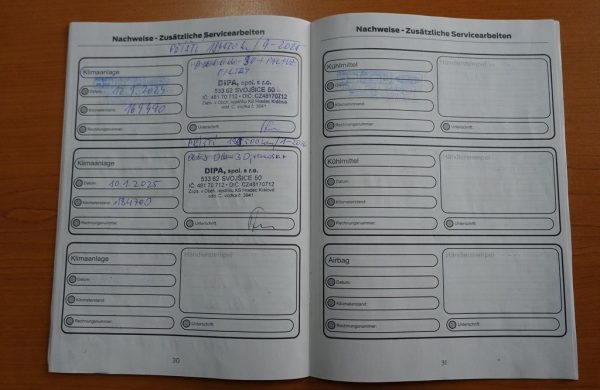 Nachweise - Zusätzliche Servicearbeiten
Klimaanlage
Datum
12.9.2024
Kilometerstand
169490
Rechnungsnummer:
FILTRY
DIPA, spol. s r.o.
533 62 SVOJŠICE 50
IČ: 481 70 712 • DIČ: CZ48170712
Zaps. v Obch. rejstříku KS Hradec Králové
odd. C. vložka č. 3841
Unterschrift:
Klimaanlage
Datum
10.1.2025
Kilometerstand
184700
Rechnungsnummer:
DIPA, spol. s r.o.
533 62 SVOJŠICE 50
IČ: 481 70 712 • DIČ: CZ48170712
Zaps. v Obch. rejstříku KS Hradec Králové
odd. C. vložka č. 3841
Unterschrift:
Klimaanlage
Datum:
Kilometerstand:
Rechnungsnummer:
Händlerstempel
Unterschrift:
30
Nachweise - Zusätzliche Servicearbeiten
Kühlmittel
Datum:
Kilometerstand:
Rechnungsnummer:
Händlerstempel
Unterschrift:
Kühlmittel
Datum:
Kilometerstand:
Rechnungsnummer:
Händlerstempel
Unterschrift:
Airbag
Datum:
Kilometerstand:
Rechnungsnummer:
Händlerstempel
Unterschrift:
31